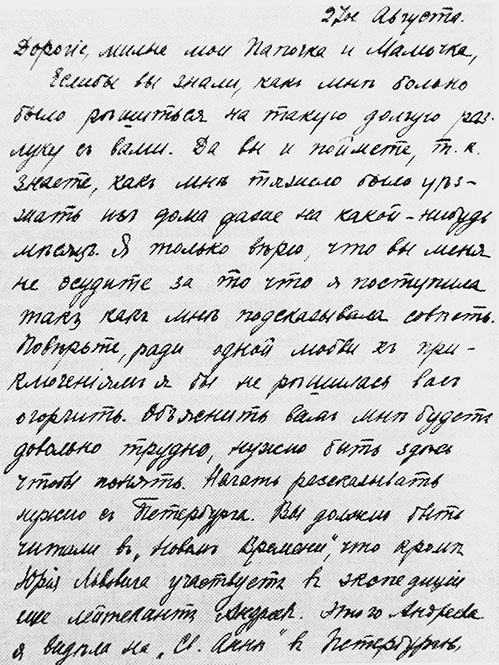 27ое Августа.
Дорогіе, милые мои Папочка и Мамочка,
Еслибы вы знали, какъ мнѣ больно
было рѣшиться на такую долгую раз-
луку съ вами. Да вы и поймете, т. к.
знаете, какъ мнѣ тяжело было уѣз-
жать изъ дома даже на какой-нибудь
мѣсяцъ. Я только вѣрю, что вы меня
не осудите за то что я поступила
такъ какъ мнѣ подсказывала совѣсть.
Повѣрьте, ради одной любви къ при-
ключеніямъ я бы не рѣшилась васъ
огорчить. Объяснить вамъ мнѣ будетъ
довольно трудно, нужно быть здѣсь
чтобы понять. Начать разсказывать
нужно съ Петербурга. Вы должно быть
читали въ „Новомъ Времени“, что кромѣ
Юрія Львовича участвуетъ въ экспедиціи
еще лейтенантъ Андреевъ. Этого Андреева
я видѣла на „Св. Аннѣ“ въ Петербургѣ,